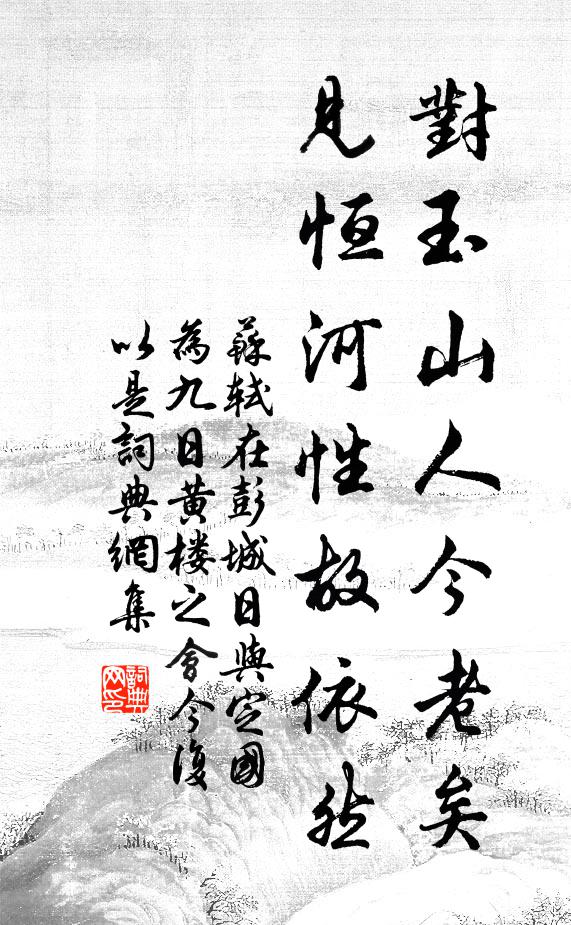 對玉山人今老矣
見恒河性故依然
蘇軾在彭城日與定國
為九日黄楼之會今復
以是詞典網集
詞典
网印